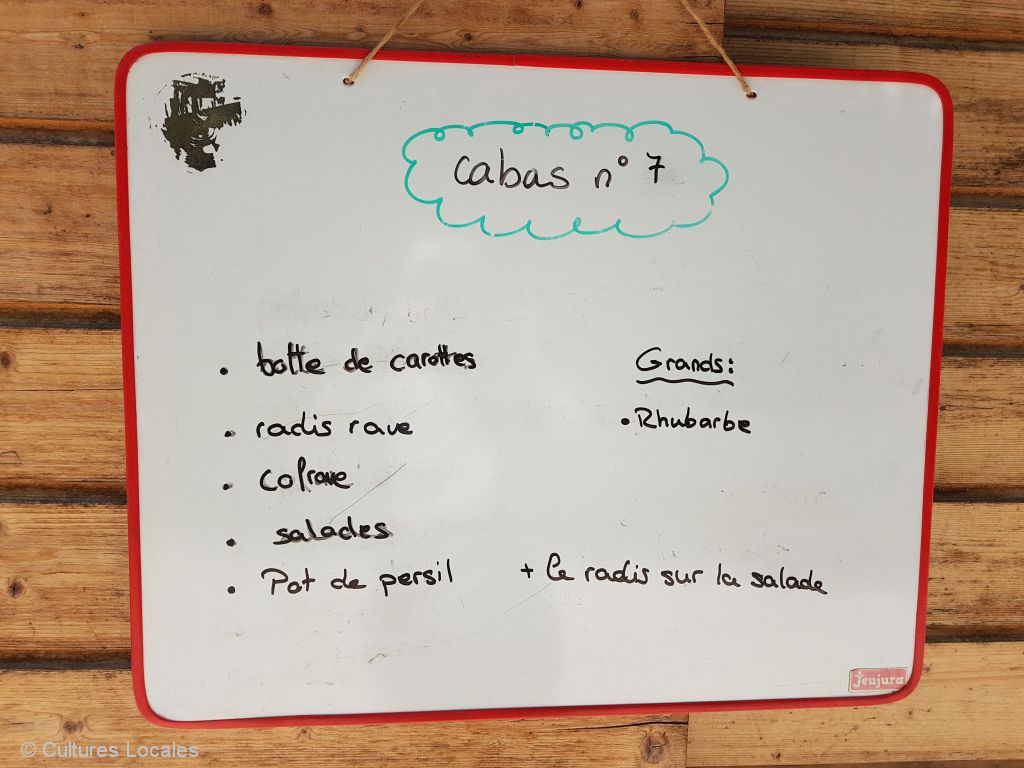 cabas n° 7
• botte de carottes
• radis rave
• colrave
• salades
• Pot de persil
Grands:
• Rhubarbe
+ le radis sur la salade
Jeujura
© Cultures Locales